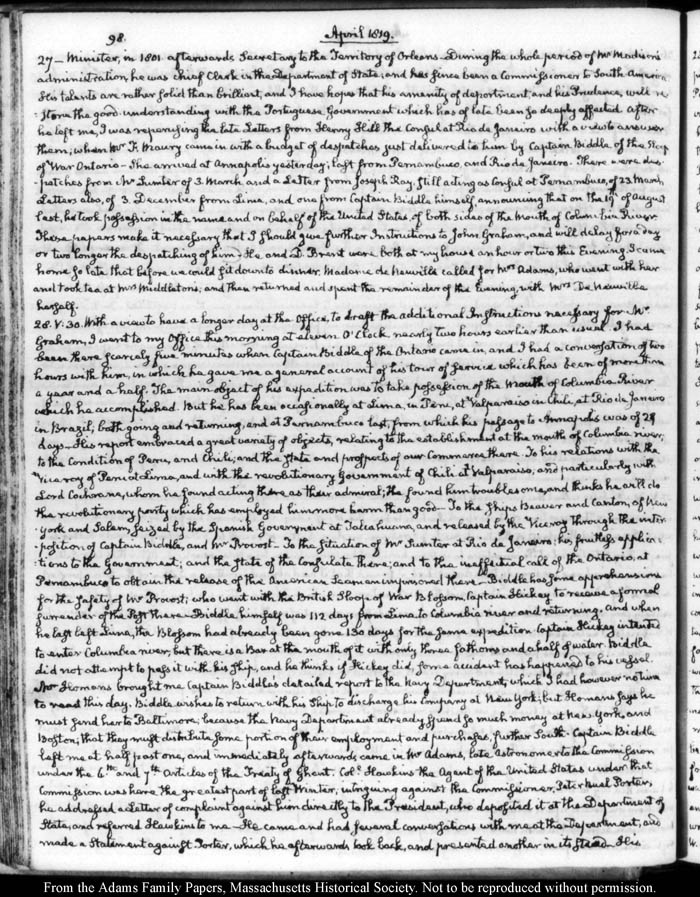 98.
April 1819.
27 — Minister, in 1801 afterwards Secretary to the Territory of Orleans — During the whole period of Mr Madison's
administration, he was chief Clerk in the Department of State; and has since been a Commissioner to South-America.
His talents are rather solid than brilliant, and I have hopes that his amenity of deportment, and his Prudence, will re
:store the good understanding with the Portuguese Government which has of late been so deeply affected. After
he left me, I was reperusing the late Letters from Henry Hill the Consul at Rio de Janeiro with a view to answer
them; when Mr F. Maury came in with a budget of despatches just delivered to him by Captain Biddle of the Sloop
of War Ontario — She arrived at Annapolis yesterday; last from Pernambuco, and Rio de Janeiro. There were des-
:patches from Mr Sumter of 3. March, and a Letter from Joseph Ray, still acting as Consul at Pernambuco, of 23. March,
Letters also, of 3. December from Lima, and one from Captain Biddle himself announcing that on the 19th of August
last, he took possession in the name and on behalf of the United States, of both sides of the mouth of Columbia River
These papers make it necessary that I should give further Instructions to John Graham, and will delay for a day
or two longer the despatching of him — He and D. Brent were both at my house an hour or two this Evening. I came
home so late that before we could sit down to dinner, Madame de Neuville called for Mrs Adams, who went with her
and took tea at Mrs Middleton's; and then returned and spent the remainder of the Evening, with Mrs De Neuville
herself.
28. V:30. With a view to have a longer day at the Office, to draft the additional Instructions necessary for Mr
Graham, I went to my Office this morning at eleven O'Clock nearly two hours earlier than usual. I had
been there scarcely five minutes when Captain Biddle of the Ontario came in, and I had a conversation of two
hours with him, in which he gave me a general account of his tour of service which has been of more than
a year and a half. The main object of his expedition was to take possession of the mouth of Columbia River
which he accomplished. But he has been occasionally at Lima, in Peru, at Valparaiso in Chili, at Rio de Janeiro
in Brazil, both going and returning, and at Pernambuco last, from which his passage to Annapolis was of 28
days — His report embraced a great variety of objects, relating to the establishment at the mouth of Columbia river,
to the Condition of Peru, and Chili; and the state and prospects of our Commerce there. To his relations with the
Vice roy of Peru at Lima, and with the revolutionary Government of Chili at Valparaiso; and particularly with
Lord Cochrane, whom he found acting there as their admiral; he found him troublesome, and thinks he will do
the revolutionary party which has employed him more harm than good — To the ships Beaver and Canton, of New
-york and Salem, seized by the Spanish Government at Talcahuana, and released by the Viceroy through the inter
:position of Captain Biddle, and Mr Provost — To the situation of Mr Sumter at Rio de Janeiro; his fruitless applica-
:tions to the Government; and the state of the Consulate there; and to the ineffectual call of the Ontario, at
Pernambuco to obtain the release of the American Seamen imprisoned there — Biddle has some apprehensions
for the safety of Mr Provost; who went with the British Sloop of War Blossom, Captain Hickey to receive a formal
surrender of the Post there — Biddle himself was 112 days from Lima to Columbia river and returning. And when
he last left Lima, the Blossom had already been gone 130 days for the same expedition Captain Hickey intended
to enter Columbia river, but there is a Bar at the mouth of it with only three fathoms and a half of water. Biddle
did not attempt to pass it with his ship, and he thinks if Hickey did, some accident has happened to his vessel.
Mr Homans brought me Captain Biddle's detailed report to the Navy Department, which I had however no time
to read this day. Biddle wishes to return with his ship to discharge his Company at New York; but Homans says he
must send her to Baltimore; because the Navy Department already spend so much money at New York, and
Boston; that they must distribute some portion of their employment and purchases, further South. Captain Biddle
left me at half past one, and immediately afterwards came in Mr Adams, late Astronomer to the Commission
under the 6th and 7th Articles of the Treaty of Ghent. Coll. Hawkins the Agent of the United States under that
Commission was here the greatest part of last Winter, intriguing against the Commissioner, Peter Buel Porter,
he addressed a Letter of complaint against him directly to the President, who deposited it at the Department of
State, and referred Hawkins to me — He came and had several conversations with me at the Department, and
made a Statement against Porter, which he afterwards took back, and presented another in its stead — His
From the Adams Family Papers, Massachusetts Historical Society. Not to be reproduced without permission.